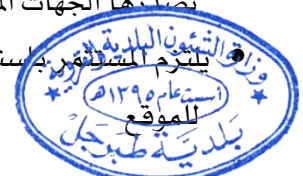 تصدرها الجهات
يلتزم المستثمر
للموقع
وزارة الشئون البلدية والقروية
أسست عام ١٣٩٥هـ
بلدية طبرجل